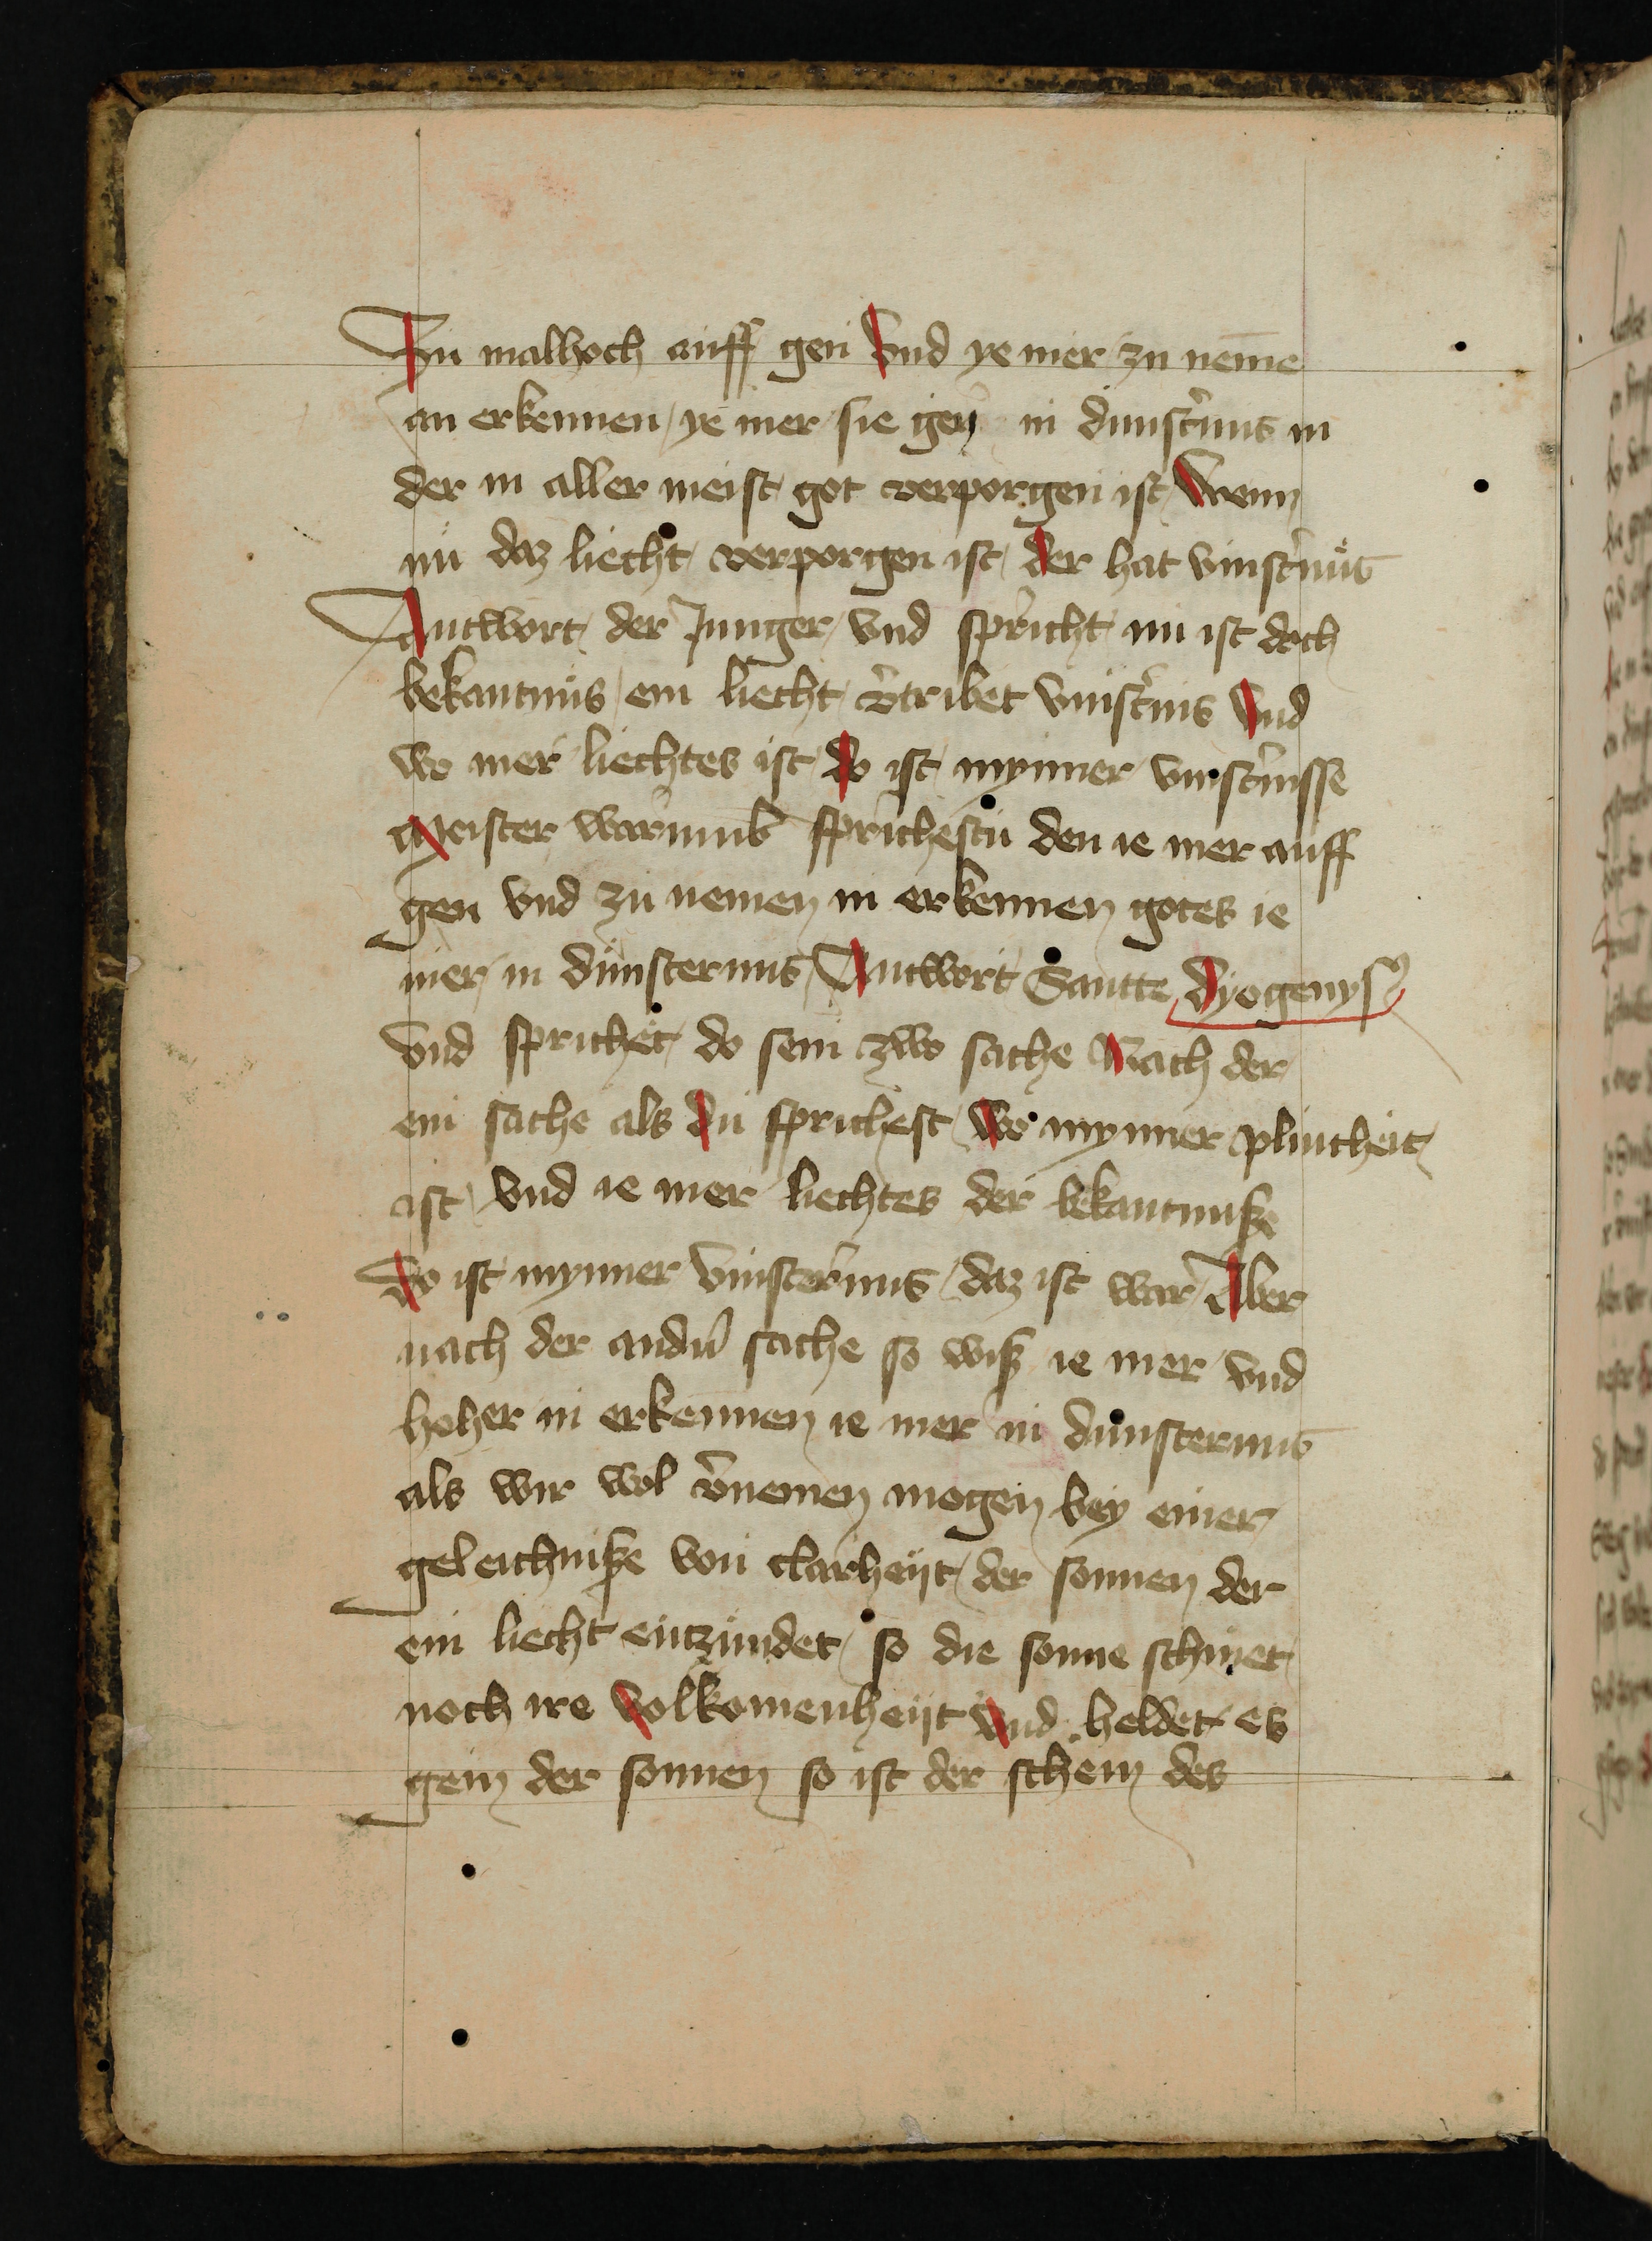 Zu malhoch auff gen Vnd ye mer zu neme
an erkennen ye mer sie gen in dunsternis in
der in aller meist got verporgen ist Wenn
nu daz liecht verporgen ist der hat vinsternus
Antwort der Junger vnd spricht nu ist doch
bekantnus ein liecht v̄tribet vinsternis Vnd
wo mer liechtes ist do ist mynner vinsternisse
Meister warumb sprichestu den ie mer auff
gen vnd zu nemen in erkennen gotes ie
mer in dunsternus Antwort Santte Dyogenys
vnd sprichet do sein zwo sache Nach der
ein sache als du sprichest Wo mynner plintheit
ist vnd ie mer liechtes der bekantnusze
Do ist mynner vinsternus daz ist war Aber
nach der andn̄ sache so wisz ie mer vnd
hoher in erkennen ie mer in dunsternus
als wir wol v̄nemen mogen bey einer
geleichnisze von clarheyt der sonnen der
ein liecht entzundet so die sonne schinet
noch ire volkomenheyt vnd heldet es
gein der sonnen so ist der schein des